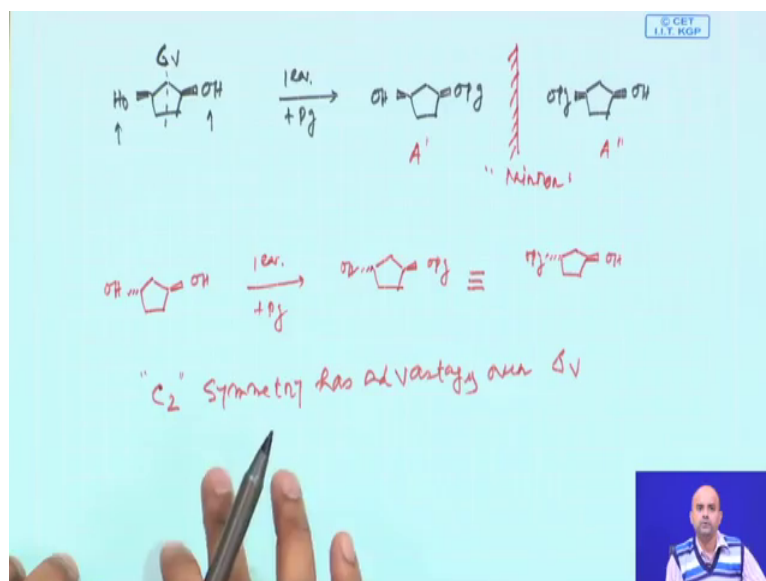 © CET
I.I.T. KGP
σv
HO OH
1 eq.
+ Pg
OH OPg
OPg OH
A'
A"
"Mirror"
OH OH
1 eq.
+ Pg
OH OPg
≡
OPg OH
"C2" Symmetry has advantage over σv